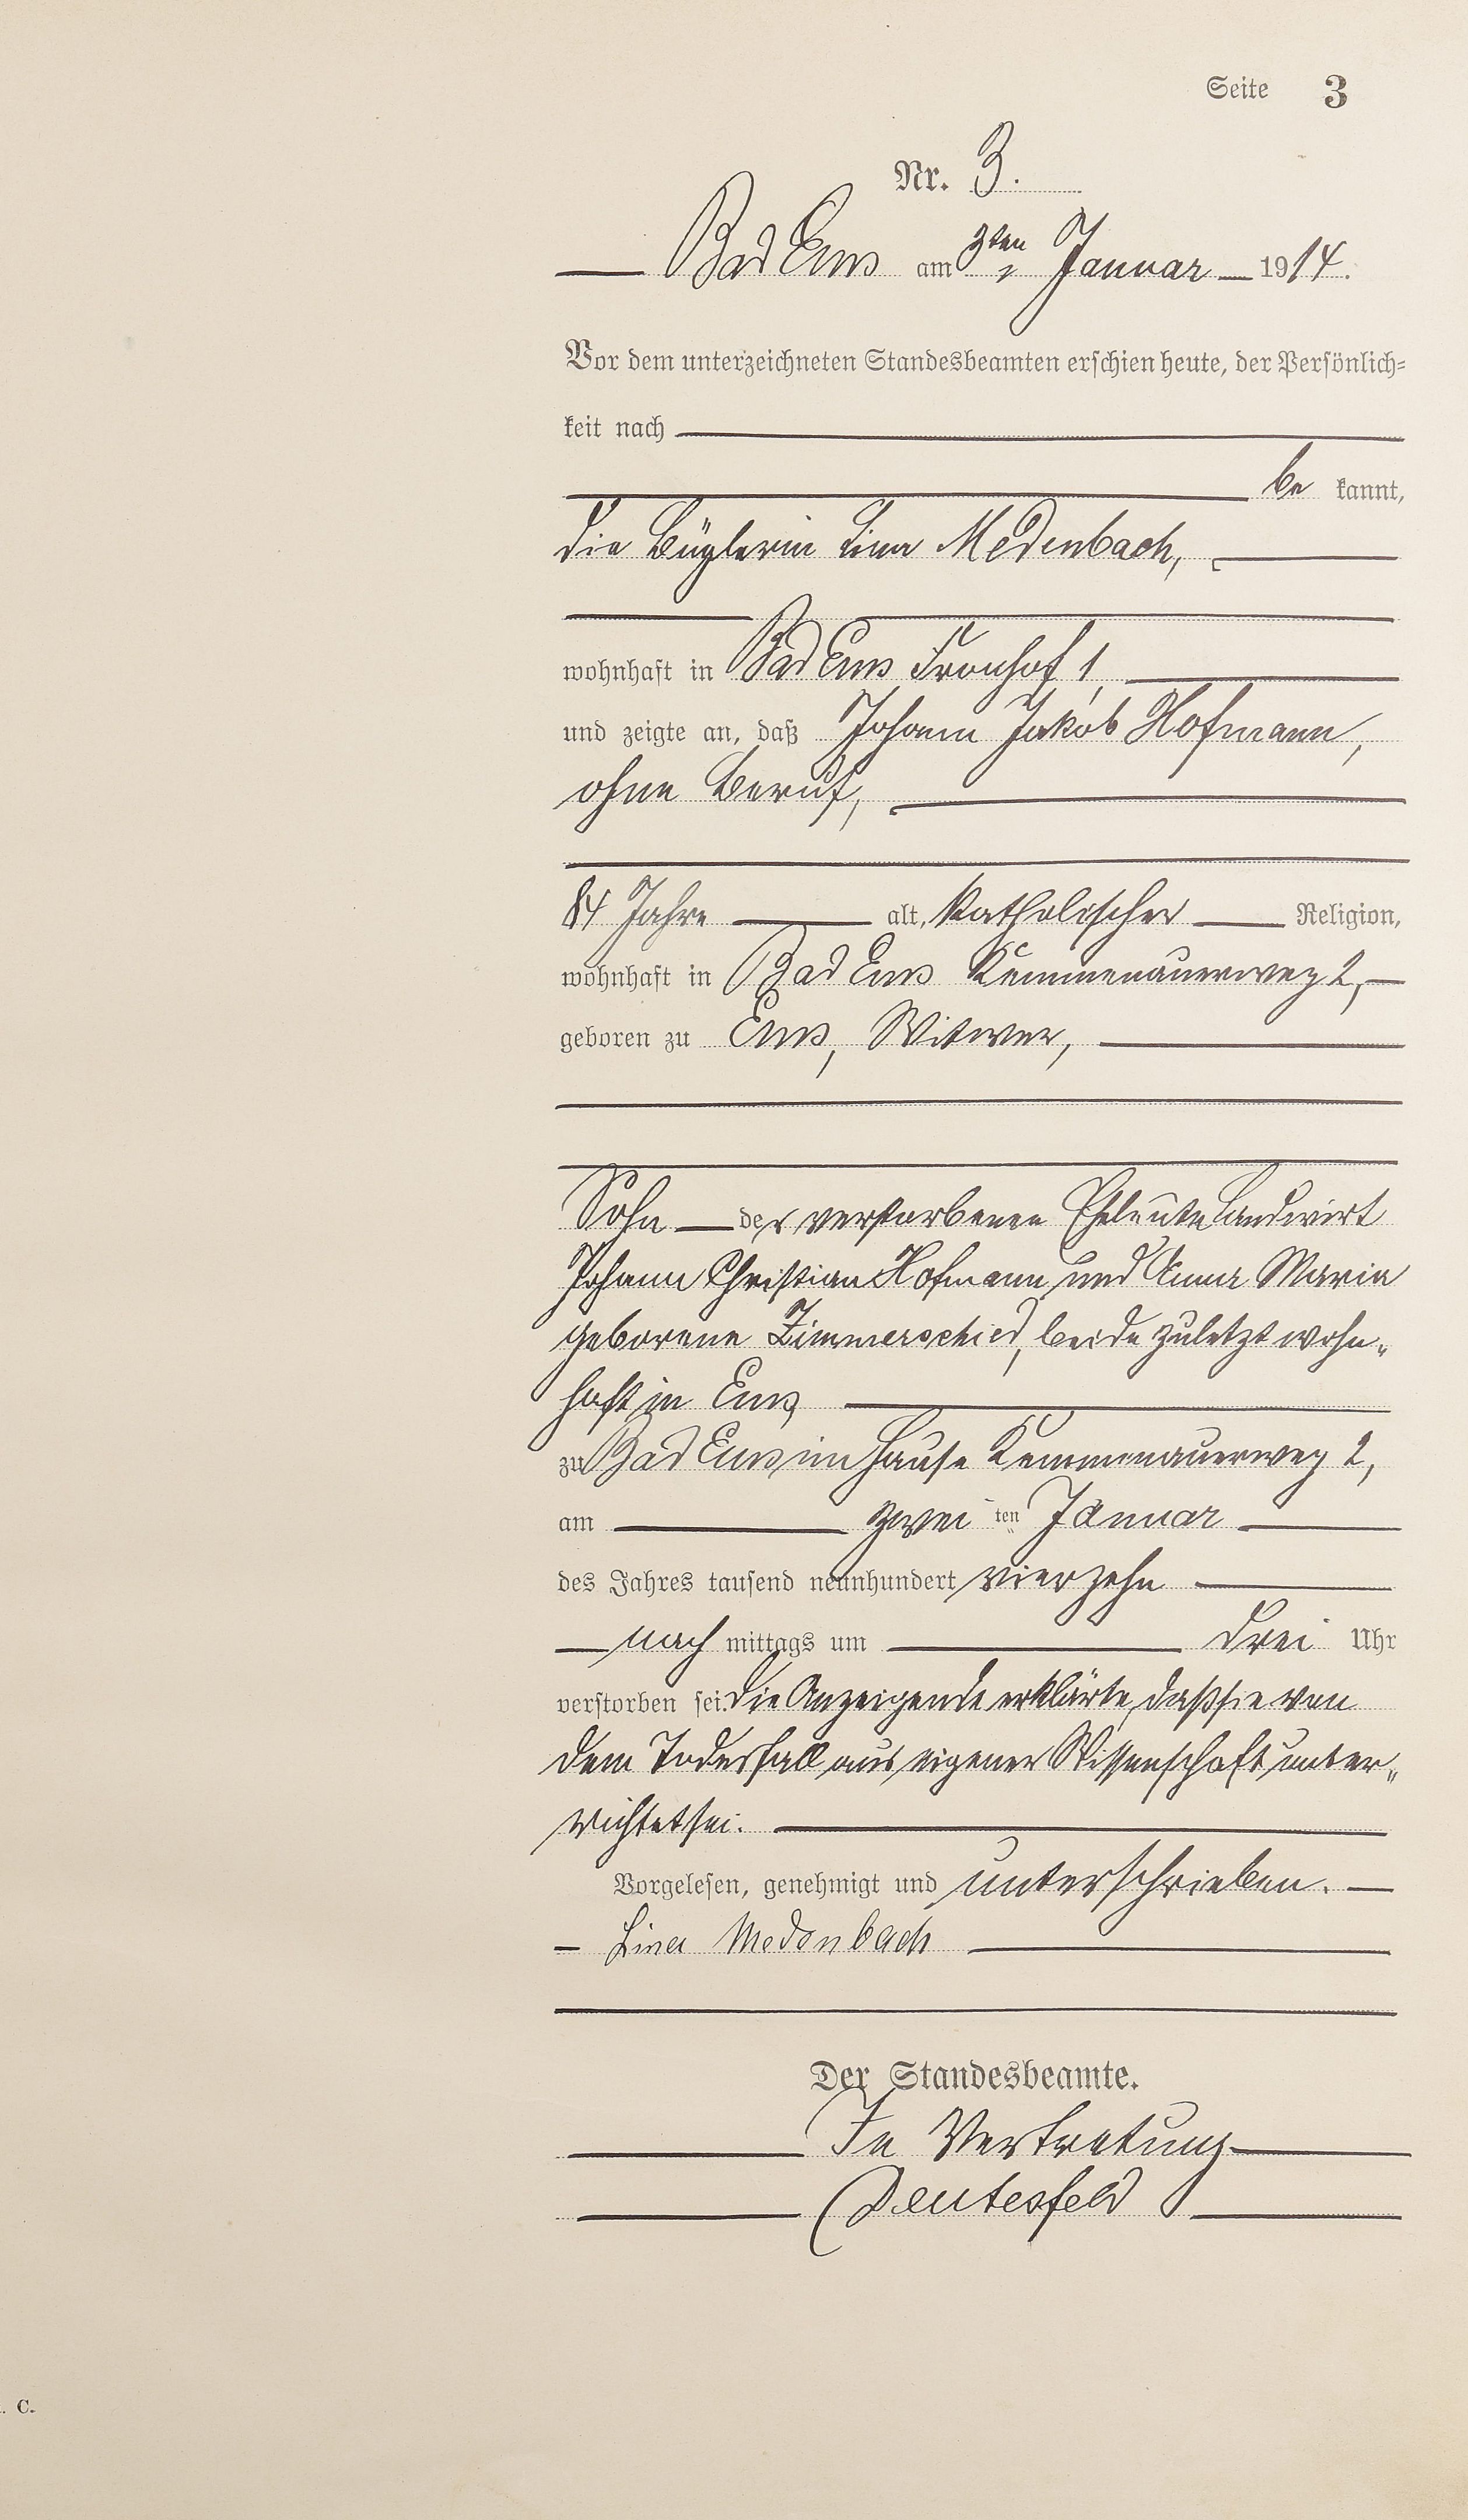 Seite 3
Nr. 3.
Bad Ems am 3ten Januar 1914.
Vor dem unterzeichneten Standesbeamten erschien heute, der Persönlich=
keit nach
be kannt,
die Büglerin Lina Medenbach,
wohnhaft in Bad Ems Fronhof 1,
und zeigte an, daß Johann Jakob Hofmann,
ohne Beruf,
84 Jahre alt, katholischer Religion,
wohnhaft in Bad Ems Kemmenauerweg 2,
geboren zu Ems, Witwer,
Sohn der verstorbenen Eheleute Landwirt
Johann Christian Hofmann und Anna Maria
geborene Zimmerschied, beide zuletzt wohn„
haft in Ems
zu Bad Ems im Hause Kemmenauerweg 2,
am zwei ten Januar
des Jahres tausend neunhundert vierzehn
nach mittags um drei Uhr
verstorben sei. Die Anzeigende erklärte, daß sie von
dem Todesfall aus eigener Wissenschaft unter„
richtet sei.
Vorgelesen, genehmigt und unterschrieben.
Lina Medenbach
Der Standesbeamte.
In Vertretung
Deutesfeld
. C.